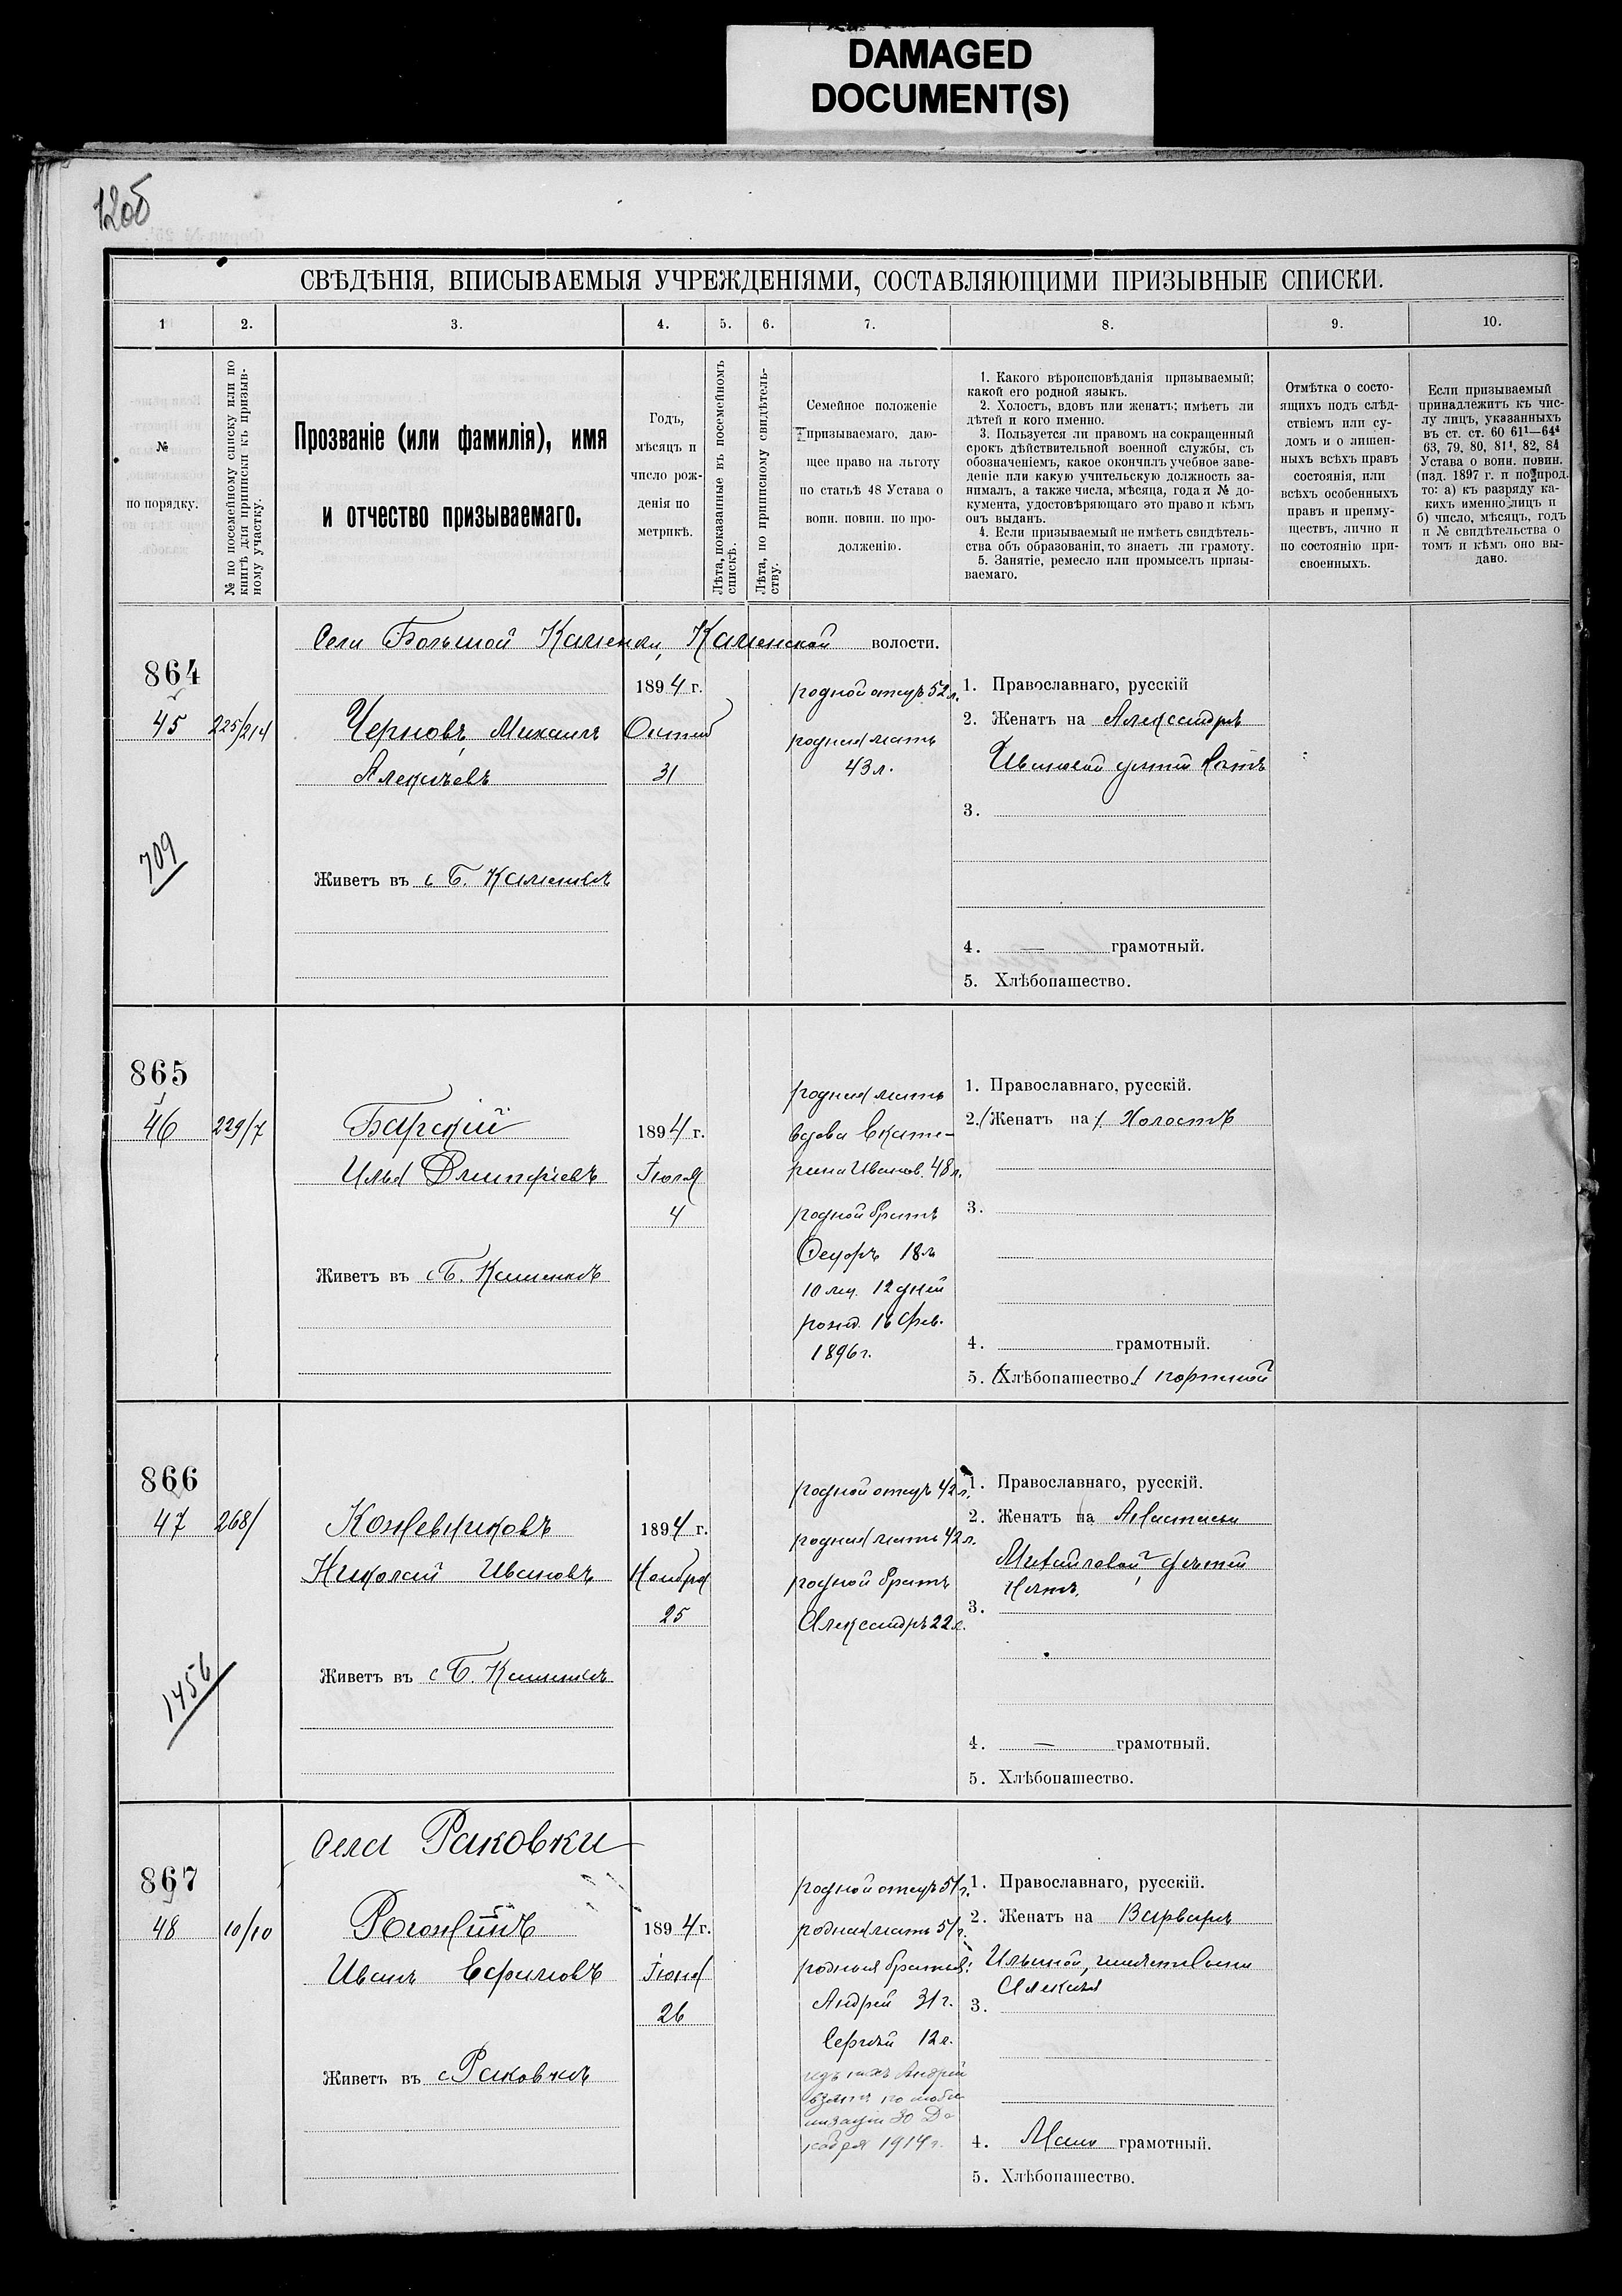 DAMAGED
DOCUMENT(S)
120б
СВѢДѢНІЯ, ВПИСЫВАЕМЫЯ УЧРЕЖДЕНІЯМИ, СОСТАВЛЯЮЩИМИ ПРИЗЫВНЫЕ СПИСКИ.
1 2. 3. 4. 5. 6. 7. 8. 9. 10.
№
по порядку.
№ по посемейному списку или по
книгѣ для приписки къ призыв-
ному участку.
Прозваніе (или фамилія), имя
и отчество призываемаго.
Годъ,
мѣсяцъ и
число рож-
денія по
метрикѣ.
Лѣта, показанные въ посемейномъ
спискѣ.
Лѣта, по приписному свидѣтель-
ству.
Семейное положеніе
призываемаго, даю-
щее право на льготу
по статьѣ 48 Устава о
воин. повин. по про-
долженію.
1. Какого вѣроисповѣданія призываемый;
какой его родной языкъ.
2. Холостъ, вдовъ или женатъ; имѣетъ ли
дѣтей и кого именно.
3. Пользуется ли правомъ на сокращенный
срокъ дѣйствительной военной службы, съ
обозначеніемъ, какое окончилъ учебное заве-
деніе или какую учительскую должность за-
нималъ, а также числа, мѣсяца, года и № до-
кумента, удостовѣряющаго это право и кѣмъ
онъ выданъ.
4. Если призываемый не имѣетъ свидѣтель-
ства объ образованіи, то знаетъ ли грамоту.
5. Занятіе, ремесло или промыселъ призы-
ваемаго.
Отмѣтка о состо-
ящихъ подъ слѣд-
ствіемъ или су-
домъ и о лишен-
ныхъ всѣхъ правъ
состоянія, или
всѣхъ особенныхъ
правъ и преиму-
ществъ, лично и
по состоянію при-
своенныхъ.
Если призываемый
принадлежитъ къ чис-
лу лицъ, указанныхъ
въ ст. ст. 60 61¹—64⁴
63, 79, 80, 81¹, 82, 84
Устава о воин. повин.
(изд. 1897 г. и по прод.
то: а) къ разряду ка-
кихъ именно лицъ и
б) число, мѣсяцъ, годъ
и № свидѣтельства о
томъ и кѣмъ оно вы-
дано.
Села Большой Каменки, Каменской волости.
864
45
225/214
Черновъ, Михаилъ
Алексѣевъ
Живетъ въ с Б. Каменкѣ
1894 г.
Октяб
31
родной отецъ 52 л.
родная мать
43 л.
1. Православнаго, русскій
2. Женатъ на Александрѣ
Ивановой дѣтей нѣтъ
3.
4. — грамотный.
5. Хлѣбопашество.
709
865
46
229/7
Барскій
Илья Дмитріевъ
Живетъ въ с Б. Каменкѣ
1894 г.
Іюля
4
родная мать
вдова Екате-
рина Иванов. 48 л.
родной братъ
Ѳедоръ 18 л
10 мец. 12 дней
рожд. 16 Фев.
1896 г.
1. Православнаго, русскій.
2. (Женатъ на) Холостъ
3.
4. грамотный.
5. (Хлѣбопашество.) портной
866
47
268/
Кожевниковъ
Николай Ивановъ
Живетъ въ с Б. Каменкѣ
1894 г.
Ноября
25
родной отецъ 42 л.
родная мать 42 л.
родной братъ
Александръ 22 л.
1. Православнаго, русскій.
2. Женатъ на Анастасіи
Михайловой, дѣтей
нѣтъ.
3.
4. — грамотный.
5. Хлѣбопашество.
1456
Села Раковки
867
48
10/10
Рогожинъ
Иванъ Ефимовъ
Живетъ въ с Раковкѣ
1894 г.
Іюня
26
родной отецъ 51 г.
родная мать 51 г.
родныя братья:
Андрей 31 г.
Сергѣй 12 л.
изъ нихъ Андрей
взятъ по моби
лизаціи 30 Де
кабря 1914 г.
1. Православнаго, русскій.
2. Женатъ на Варварѣ
Ильиной, имѣетъ сына
Алексѣя
3.
4. Мало грамотный.
5. Хлѣбопашество.